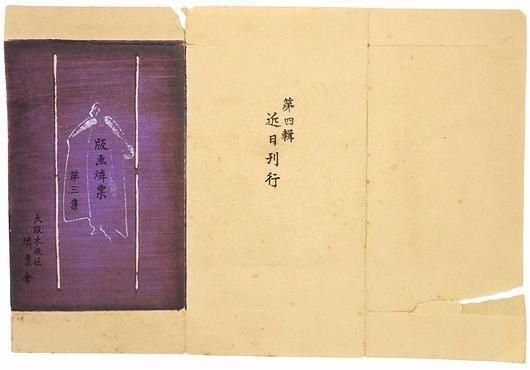 第四輯
近日刊行
版画燐票
第三集
大阪木版社
燐票會